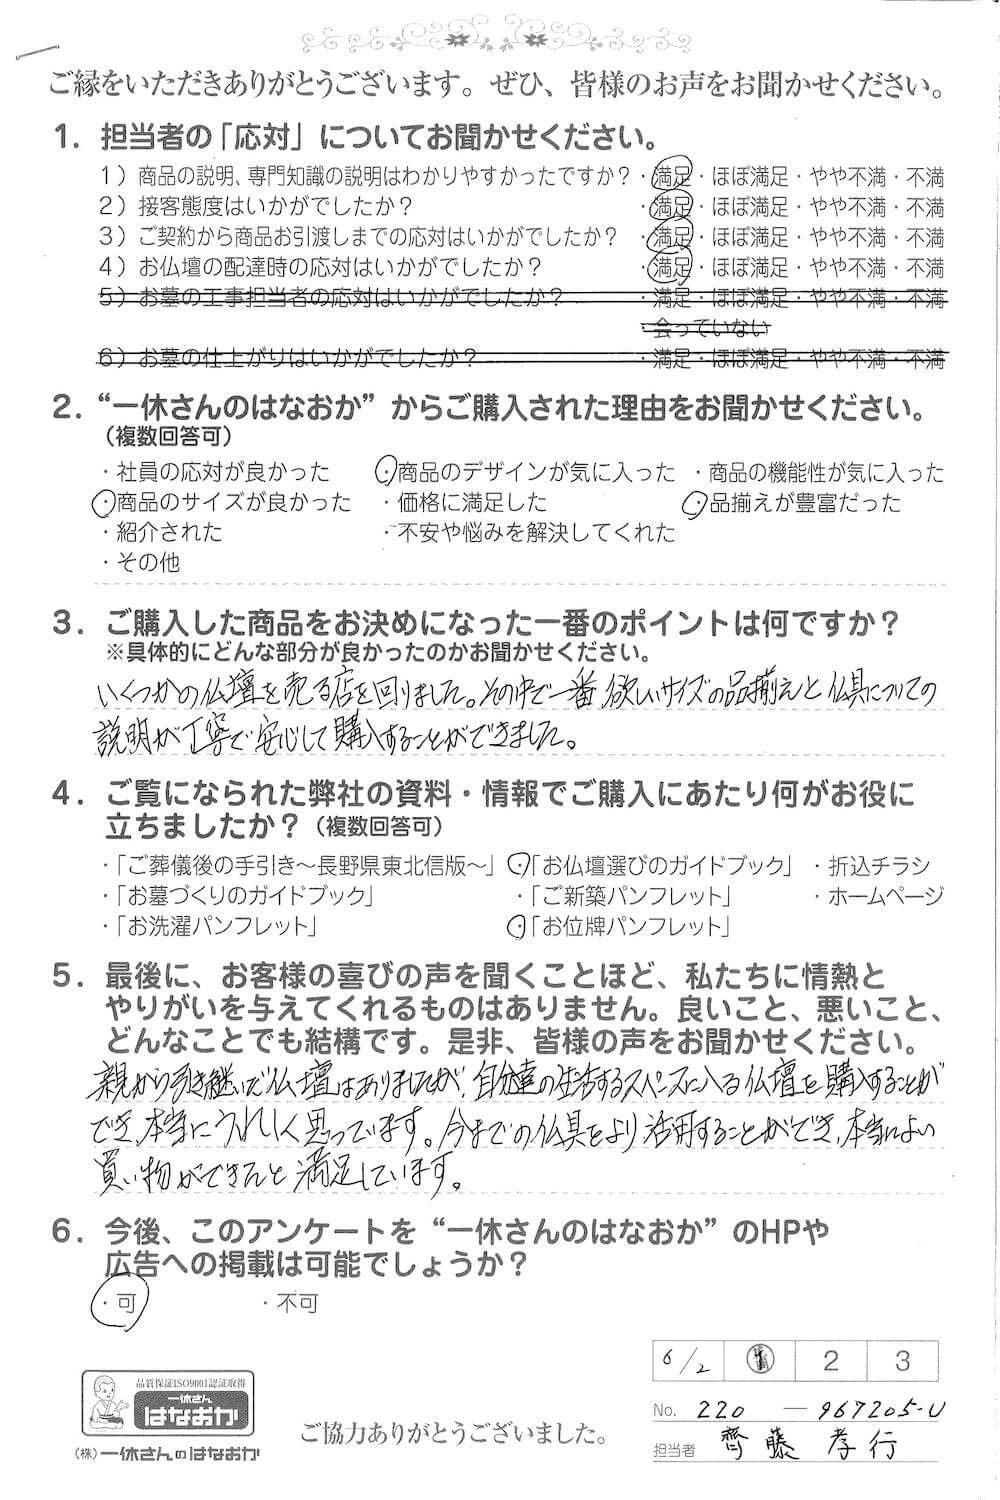 ご縁をいただきありがとうございます。ぜひ、皆様のお声をお聞かせください。
1. 担当者の「応対」についてお聞かせください。
1）商品の説明、専門知識の説明はわかりやすかったですか？・満足・ほぼ満足・やや不満・不満
2）接客態度はいかがでしたか？ ・満足・ほぼ満足・やや不満・不満
3）ご契約から商品お引渡しまでの応対はいかがでしたか？ ・満足・ほぼ満足・やや不満・不満
4）お仏壇の配達時の応対はいかがでしたか？ ・満足・ほぼ満足・やや不満・不満
5）お墓の工事担当者の応対はいかがでしたか？ ・満足・ほぼ満足・やや不満・不満
・会っていない
6）お墓の仕上がりはいかがでしたか？ ・満足・ほぼ満足・やや不満・不満
2. “一休さんのはなおか”からご購入された理由をお聞かせください。
（複数回答可）
・社員の応対が良かった ・商品のデザインが気に入った ・商品の機能性が気に入った
・商品のサイズが良かった ・価格に満足した ・品揃えが豊富だった
・紹介された ・不安や悩みを解決してくれた
・その他
3. ご購入した商品をお決めになった一番のポイントは何ですか？
※具体的にどんな部分が良かったのかお聞かせください。
いくつかの仏壇を売る店を回りました。その中で一番欲しいサイズの品揃えと仏具についての
説明が丁寧で安心して購入することができました。
4. ご覧になられた弊社の資料・情報でご購入にあたり何がお役に
立ちましたか？（複数回答可）
・「ご葬儀後の手引き～長野県東北信版～」 ・「お仏壇選びのガイドブック」 ・折込チラシ
・「お墓づくりのガイドブック」 ・「ご新築パンフレット」 ・ホームページ
・「お洗濯パンフレット」 ・「お位牌パンフレット」
5. 最後に、お客様の喜びの声を聞くことほど、私たちに情熱と
やりがいを与えてくれるものはありません。良いこと、悪いこと、
どんなことでも結構です。是非、皆様の声をお聞かせください。
親から引き継いだ仏壇はありましたが、自分達の生活するスペースに入る仏壇を購入することが
でき、本当にうれしく思っています。今までの仏具をより活用することができ、本当によい
買い物ができたと満足しています。
6. 今後、このアンケートを“一休さんのはなおか”のHPや
広告への掲載は可能でしょうか？
・可 ・不可
6/2 2 3
品質保証ISO9001認証取得
一休さん
はなおか
（株）一休さんのはなおか
ご協力ありがとうございました。
No. 220 — 967205-U
担当者 齊藤 孝行